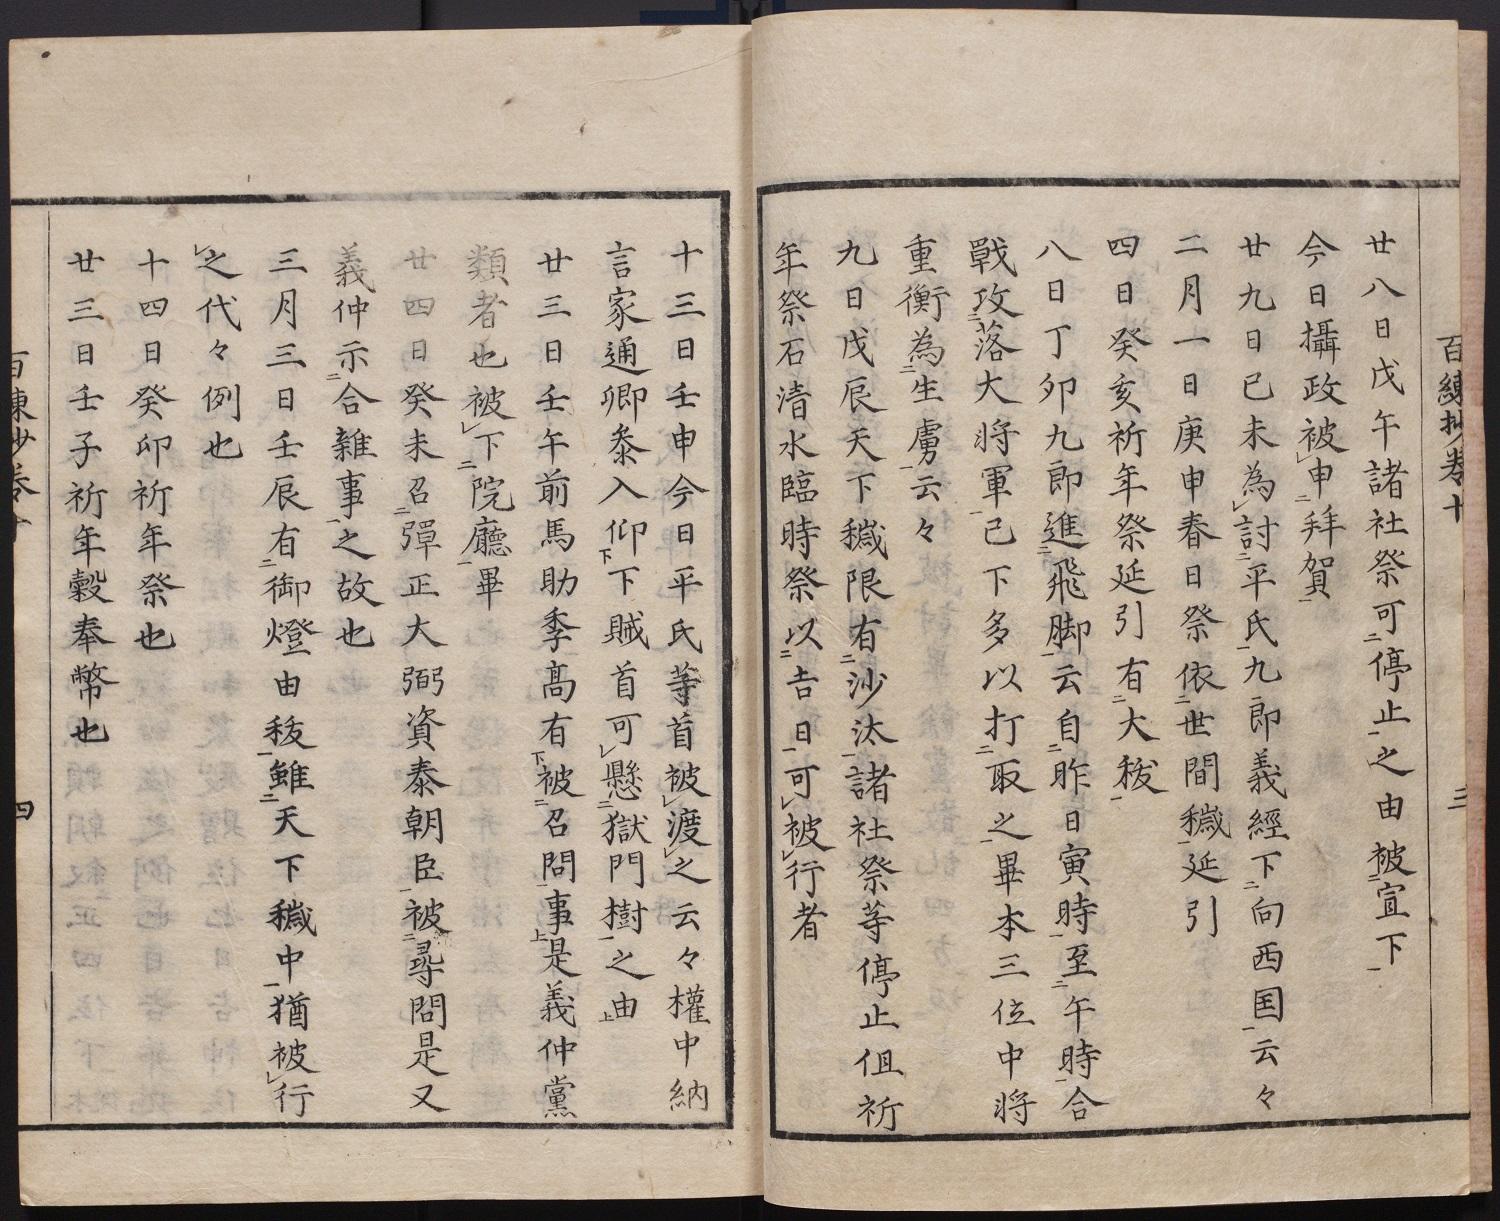 百練抄卷十
三
廿八日戊午諸社祭可停止之由被宣下
今日攝政被申拜賀
廿九日己未為討平氏九郎義經下向西国云々
二月一日庚申春日祭依世間穢延引
四日癸亥祈年祭延引有大秡
八日丁卯九郎進飛脚云自昨日寅時至午時合
戰攻落大将軍已下多以打取之畢本三位中将
重衡為生虜云々
九日戊辰天下穢限有沙汰諸社祭等停止但祈
年祭石清水臨時祭以吉日可被行者
十三日壬申今日平氏等首被渡之云々權中納
言家通卿叅入仰下賊首可懸獄門樹之由
廿三日壬午前馬助季髙有被召問事是義仲黨
類者也被下院廳畢
廿四日癸未召彈正大弼資泰朝臣被尋問是又
義仲示合雜事之故也
三月三日壬辰有御燈由秡雖天下穢中猶被行
之代々例也
十四日癸卯祈年祭也
廿三日壬子祈年穀奉幣也
百練抄卷十
四